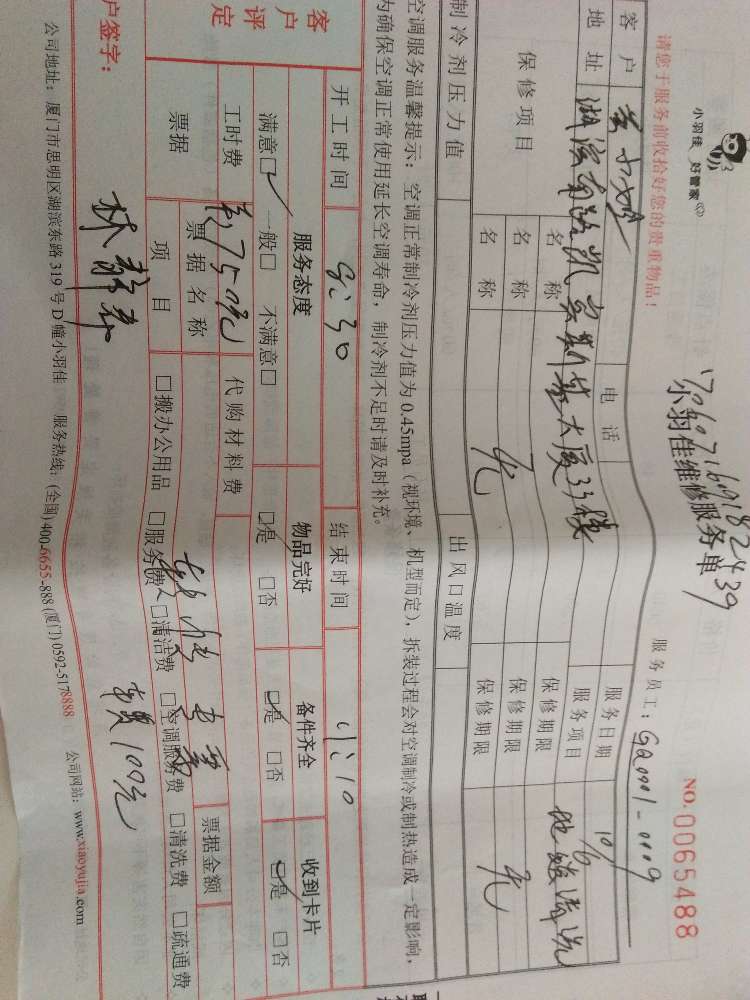 小羽佳 好管家
小羽佳维修服务单
NO.0065488
请您于服务前收拾好您的贵重物品!
服务员工: GQ0901-0009
客户 电话 服务日期 10/6
地址 湖滨南路凯宾斯基大厦33楼 服务项目 地毯清洗
保修项目 名称 保修期限
名称 保修期限
名称 无 保修期限 无
制冷剂压力值 出风口温度
空调服务温馨提示: 空调正常制冷剂压力值为0.45mpa(视环境、机型而定), 拆装过程会对空调制冷或制热造成一定影响,
为确保空调正常使用延长空调寿命, 制冷剂不足时请及时补充。
开工时间 9:30 结束时间 11:10
客户评定 服务态度 物品完好 备件齐全 收到卡片
满意☑ 一般□ 不满意□ □是 □否 ☑是 □否 ☑是 □否
工时费 750元 代购材料费
票据 票据名称 票据金额
项目 □搬办公用品 □服务费 □清洁费 □空调服务费 □清洗费 □疏通费
户签字: 车费100元
公司地址: 厦门市思明区湖滨东路319号D幢小羽佳 服务热线: (全国)400-6655-888 (厦门)0592-5178888 公司网站: www.xiaoyujia.com